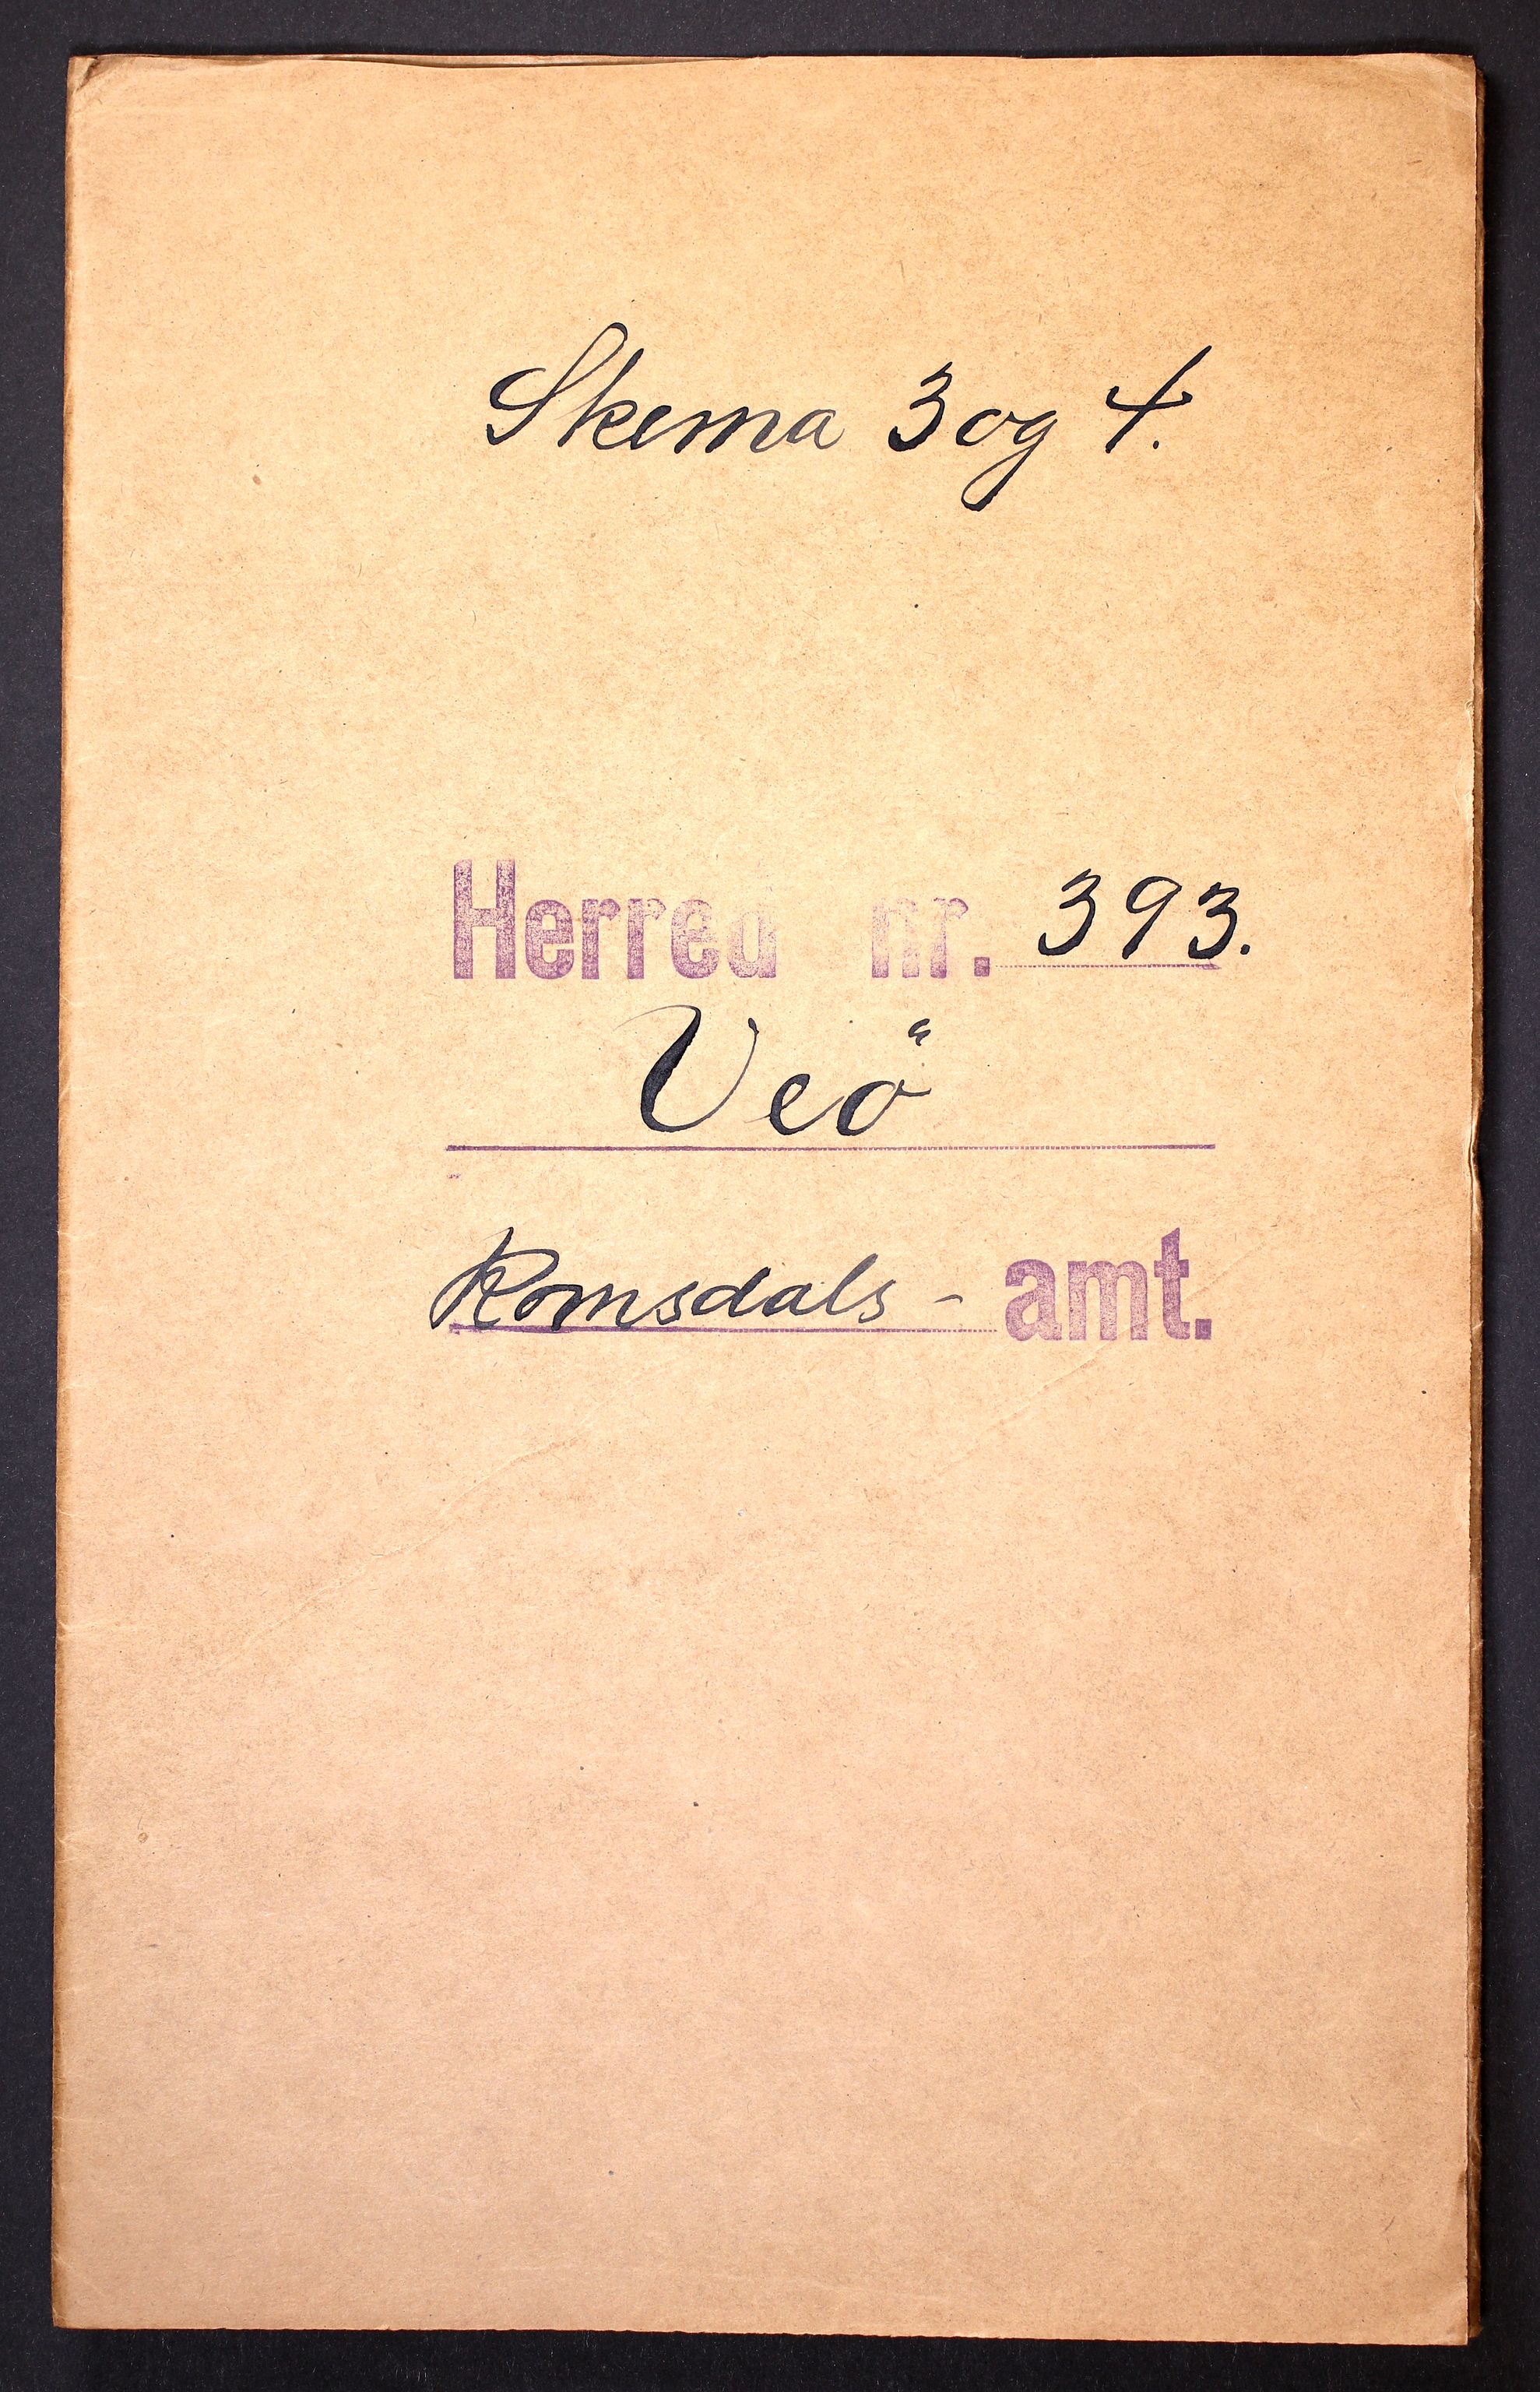 Skema 3 og 4.
Herred nr. 393.
Veö
Romsdals - amt.